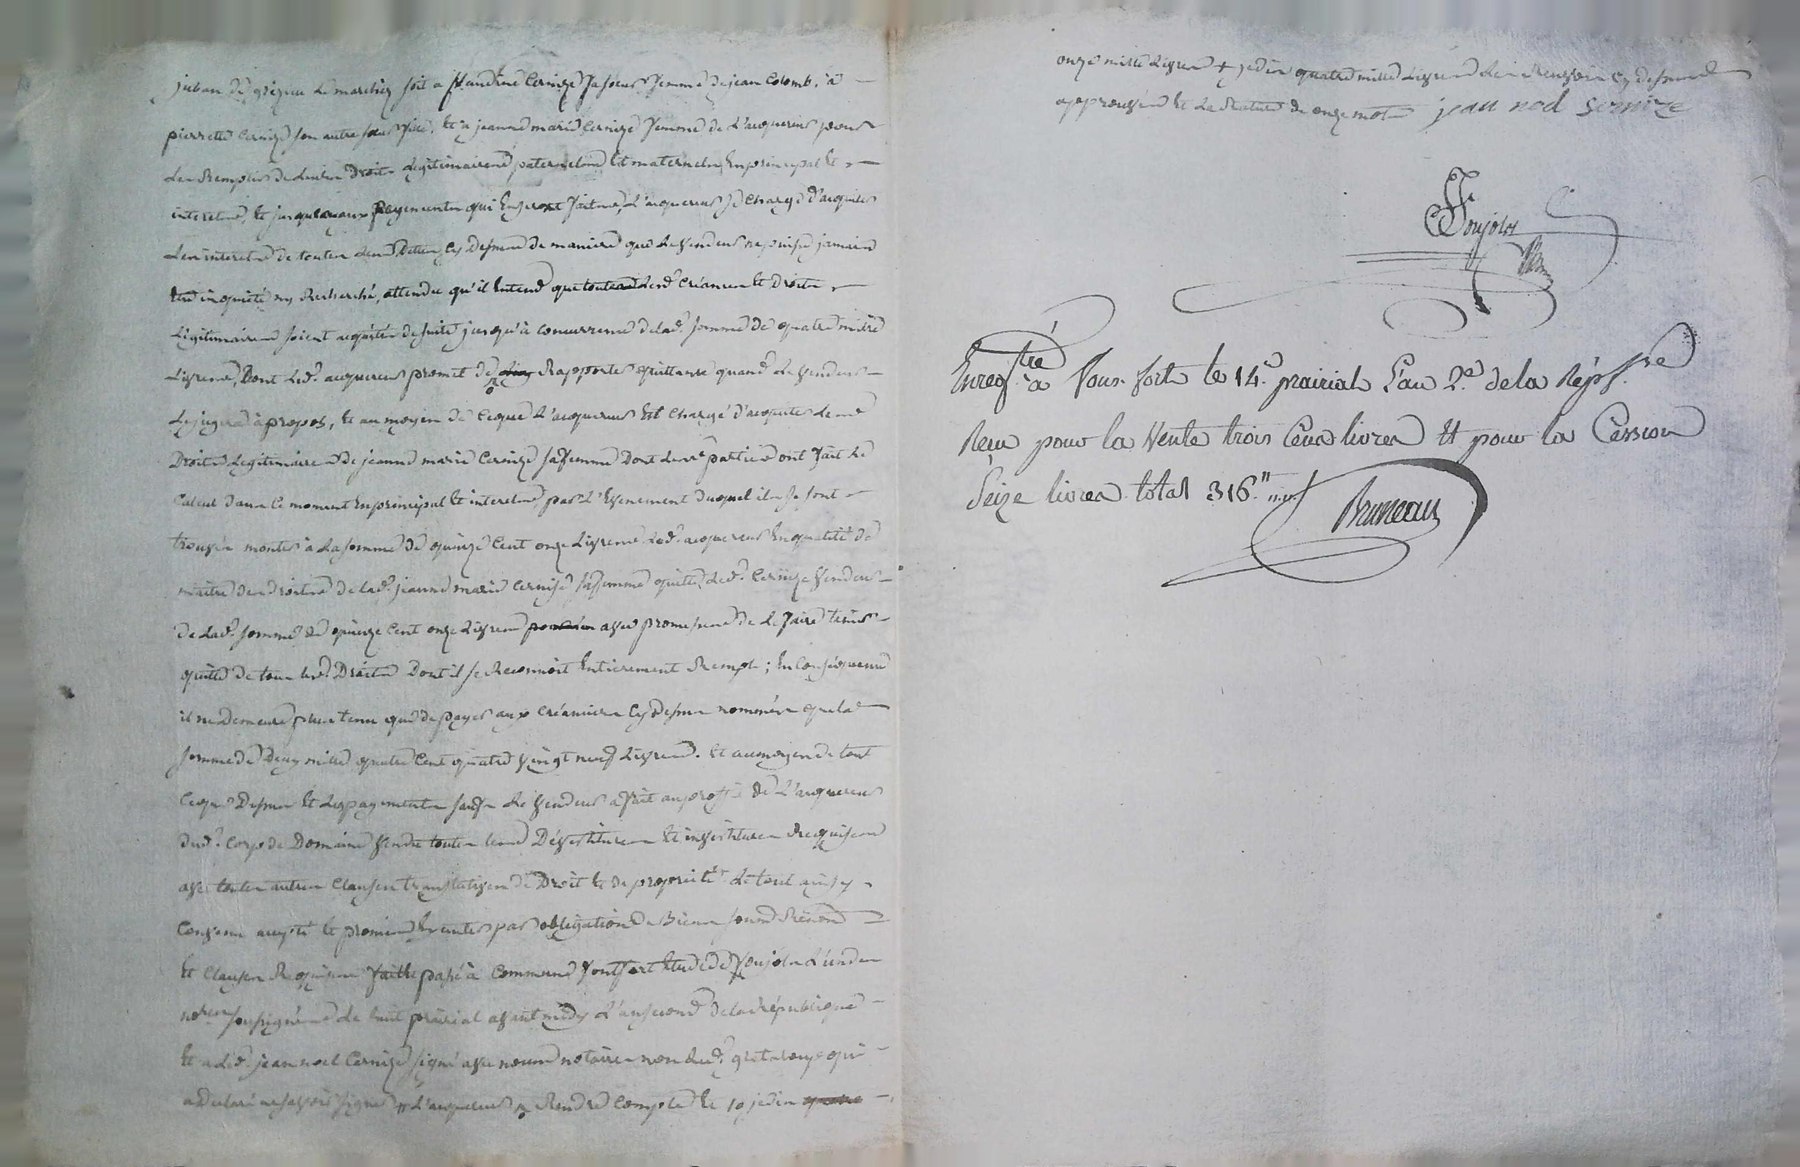 juban de grezieu le marché soit a Claudine Cernize sa soeur femme de jean Colomb, à
pierrette Cernize son autre soeur fille, et à jeanne marie Cernize femme de l'acquereur pour
les remplir de leurs droits legitimaires paternels et maternels en principal et
interets, et jusques aux payements qui en seront faits, l'acquereur se charge d'acquiter
les interets de toutes les dettes cy dessus de maniere que le vendeur ne puisse jamais
être inquiété ny recherché, attendu qu'il entend que toutes lesd. créances et droits
legitimaires soient acquités de suite jusqu'à concurrence de lad. somme de quatre mille
livres, dont led. acquereur promet de rapporter quittance quand le vendeur
le jugera à propos, et au moyen de ce que l'acquereur est chargé d'acquiter les
droits legitimaires de jeanne marie Cernize sa femme dont les parties ont fait le
calcul dans ce moment en principal et interets, par l'evenement duquel ils se sont
trouvés monter à la somme de quinze cent onze livres led. acquereur en qualité de
maitre des droits de lad. jeanne marie Cernize sa femme quitte led. Cernize vendeur
de lad. somme de quinze cent onze livres avec promesse de le faire tenir
quitte de tous lesd. droits dont il se reconnoit entierement rempli; en consequence
il ne demeure plus tenu que de payer aux créanciers cy dessus nommés que la
somme de deux mille quatre cent quatre vingt neuf livres. et au moyen de tout
ce que dessus et les payements faits le vendeur a fait au profit de l'acquereur
dud. corps de domaine vendu toutes les dévestitures et investitures requises
avec toutes autres clauses translatives de droit et de proprieté le tout ainsy
convenu accepté et promis executer par obligation de biens soumis renoncé
et clauses requises fait et passé à commune fontfort etude de Poujols l'un des
nores soussignés le huit prairial avant midy l'an second de la république
et a led. jean noel Cernize signé avec nous notaires non led. qui
a déclaré ne savoir signer # l'acquereur # rendre compte et 10 je dis
onze mille livres + je dis quatre mille livres les renvois cy dessus
approuvés et la rature de onze mots jean noel sernize
Poujols
Enregtré a fons fort le 14.e prairial l'an 2.e de la Rép.
Reçu pour la Vente trois Cens livres Et pour la Cession
Seize livres total 316."
Bruneau